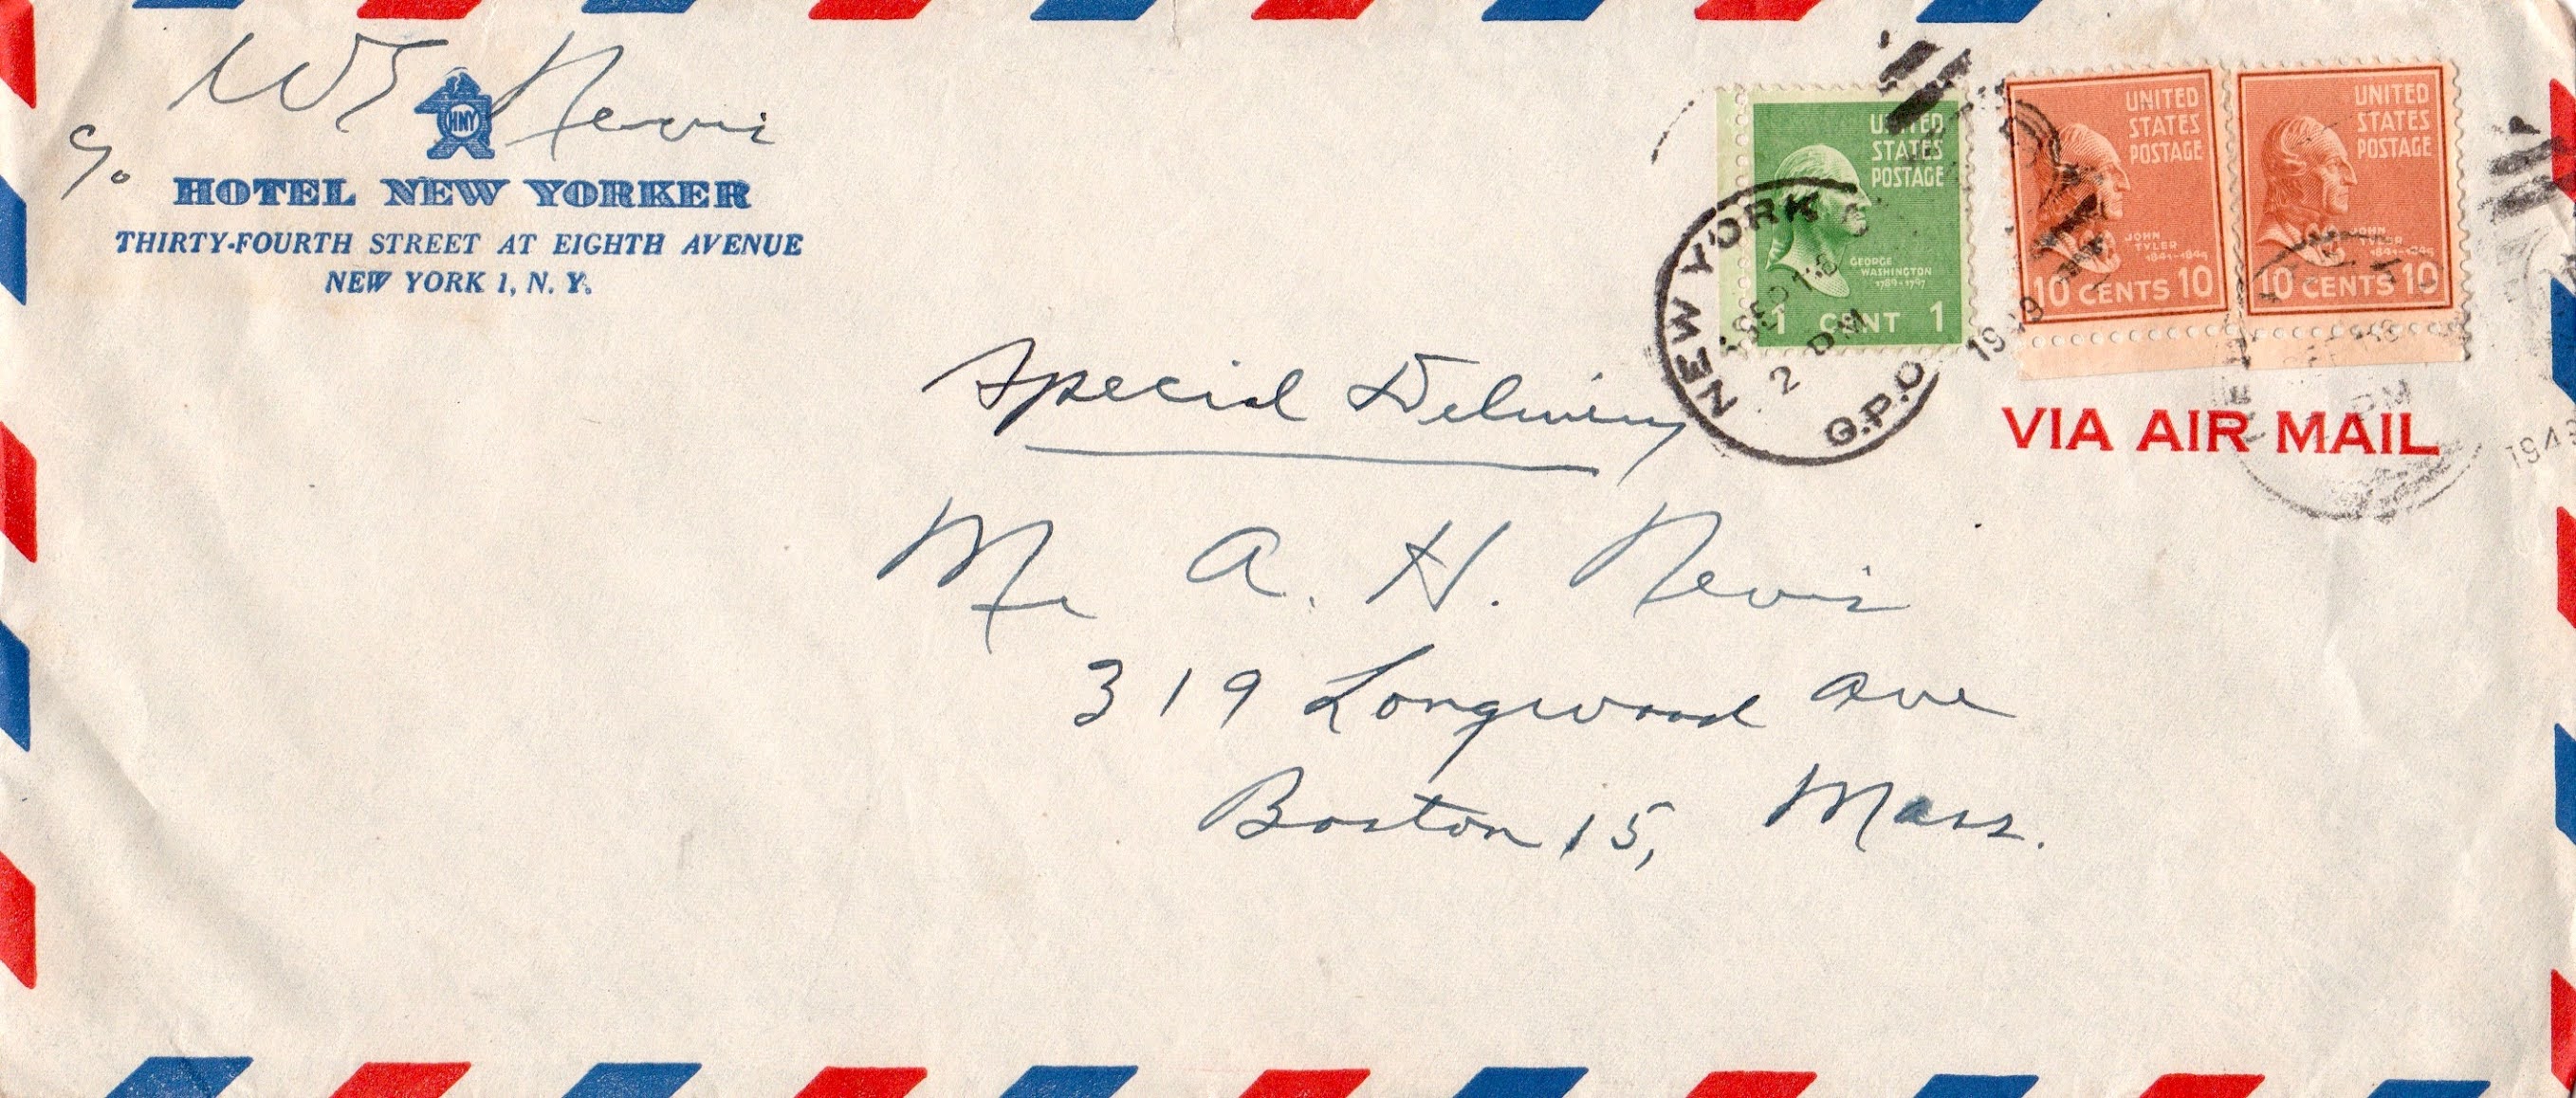 W S Nevis
HNY
c/o
HOTEL NEW YORKER
THIRTY-FOURTH STREET AT EIGHTH AVENUE
NEW YORK 1, N. Y.
UNITED
STATES
POSTAGE
GEORGE
WASHINGTON
1789-1797
1 CENT 1
UNITED
STATES
POSTAGE
JOHN
TYLER
1841-1845
10 CENTS 10
UNITED
STATES
POSTAGE
JOHN
TYLER
1841-1845
10 CENTS 10
NEW YORK
SEP 18
2 PM
G.P.O.
1949
PM
1949
VIA AIR MAIL
Special Delivery
Mr A. H. Nevis
319 Longwood Ave
Boston 15, Mass.